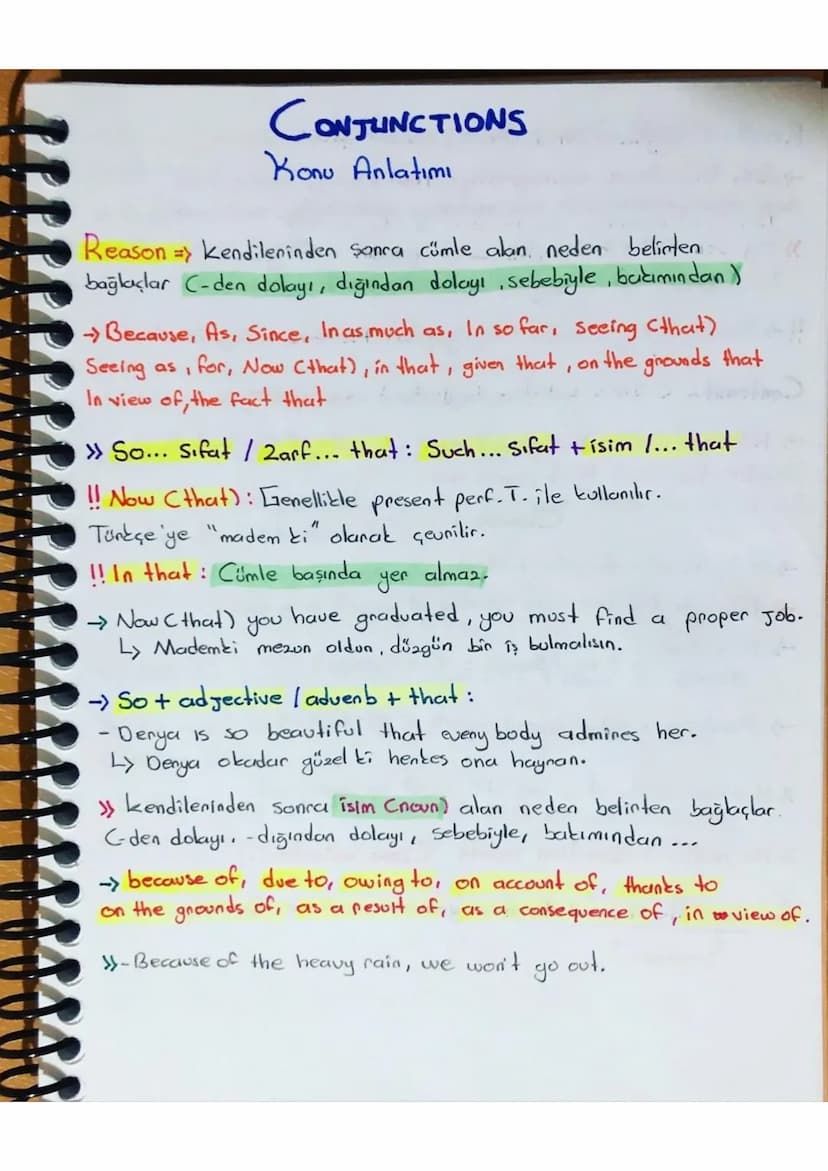 CONJUNCTIONS
Konu Anlatımı
Reason => Kendilerinden sonra cümle alan neden belirten
bağlaçlar (-den dolayı, dığından dolayı, sebebiyle, bakımından)
→ Because, As, Since, In as much as, In so far, Seeing (that)
Seeing as, for, Now (that), in that, given that, on the grounds that
In view of, the fact that
» So... sıfat / zarf... that: Such... sıfat + isim /... that
!! Now (that): Genellikle present perf. T. ile kullanılır.
Türkçe'ye "madem ki" olarak çevrilir.
!! In that: Cümle başında yer almaz.
→ Now (that) you have graduated, you must find a proper Job.
↳ Mademki mezun oldun, düzgün bir iş bulmalısın.
→ So + adjective / adverb + that:
- Derya is so beautiful that every body admires her.
↳ Derya okadar güzel ki herkes ona hayran.
» Kendilerinden sonra isim (noun) alan neden belirten bağlaçlar.
(-den dolayı, -dığından dolayı, sebebiyle, bakımından ...
→ because of, due to, owing to, on account of, thanks to
on the grounds of, as a result of, as a consequence of, in view of.
»- Because of the heavy rain, we won't go out.